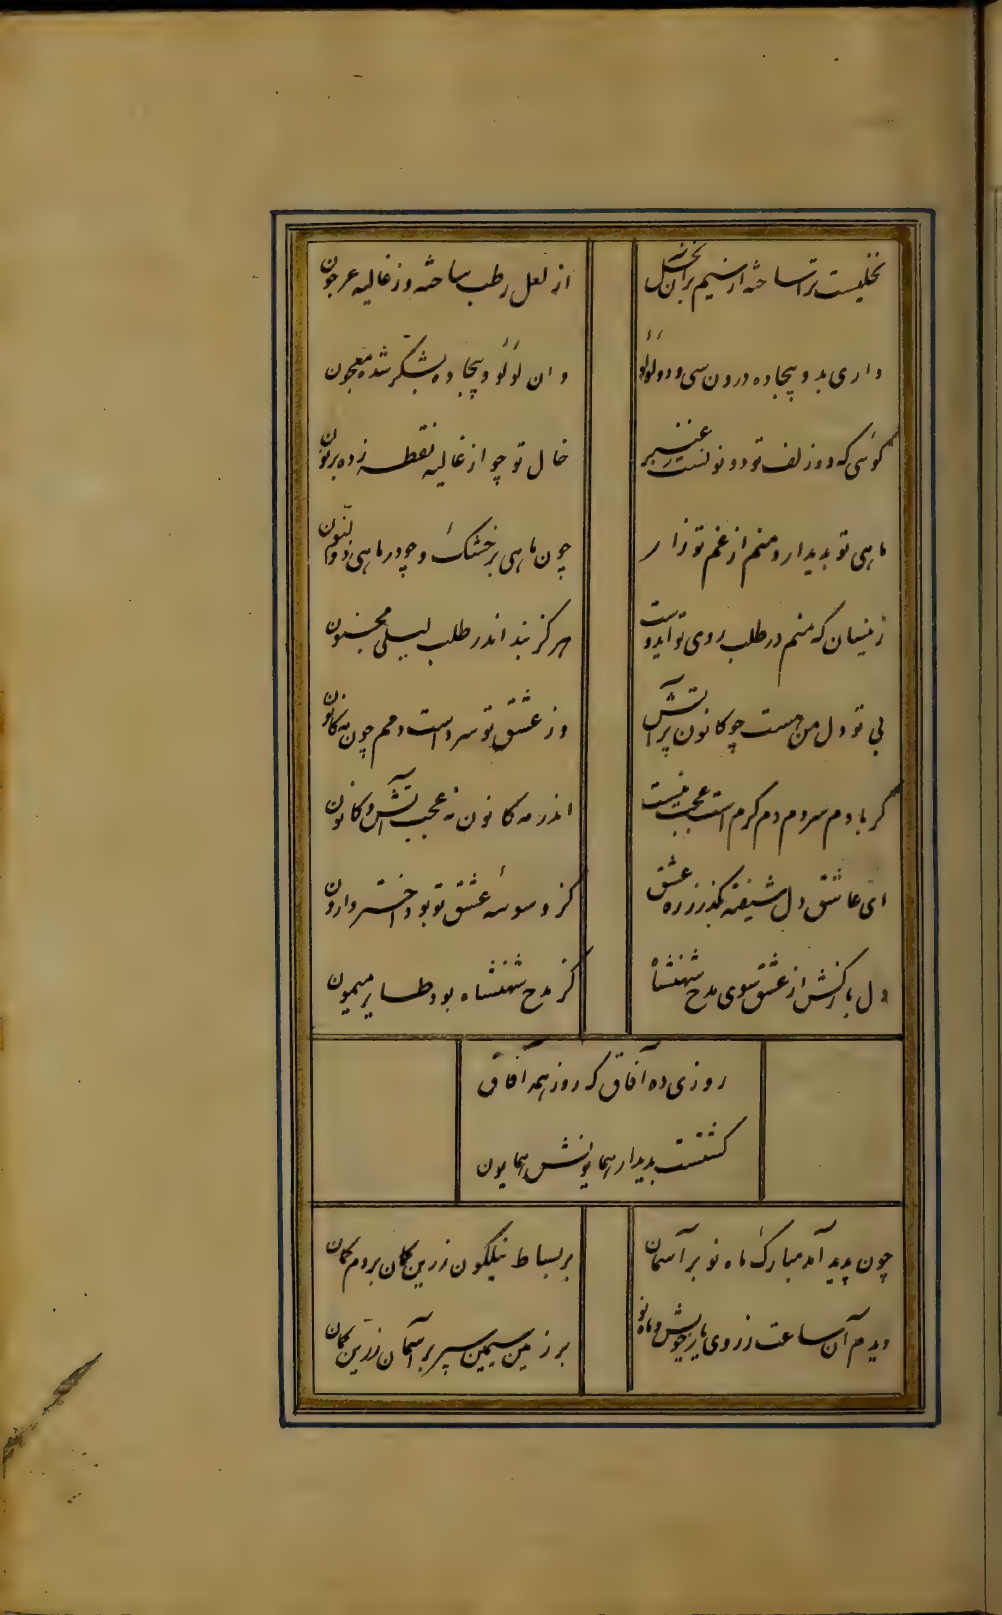 نخلیست ترا ساخته از سیم بران نخل
از لعل رطب ساخته وز غالیه عرجون
داری بدو بیجاده درون سی و دو لؤلؤ
وان لؤلؤ و بیجاده بشکر شده معجون
کوئی که دو زلف تو دو نونست ز عنبر
خال تو چو از غالیه نقطه زده بر نون
ماهی تو بدیدار و منم از غم تو زار
چون ماهی بر خشک و چو در ماهی ذوالنون
زینسان که منم در طلب روی تو ایدوست
هرگز نبد اندر طلب لیلی مجنون
بی تو دل من هست چو کانون پر آتش
وز عشق تو سرد است دمم چون مه کانون
گر با دم سردم دم گرم است عجب نیست
اندر مه کانون نه عجب آتش و کانون
ای عاشق دل شیفته بگذر ز ره عشق
کز وسوسه عشق تو بود اختر وارون
دل بازکش از عشق سوی مدح شهنشاه
کز مدح شهنشاه بود طایر میمون
روزی ده آفاق که روز همه آفاق
گشتست بدیدار همایونش همایون
چون پدید آمد مبارک ماه نو بر آسمان
بر بساط نیلگون زرین کمان بردم گمان
دیدم آن ساعت ز روی یار خویش و ماه نو
بر زمین سیمین سپر بر آسمان زرین کمان